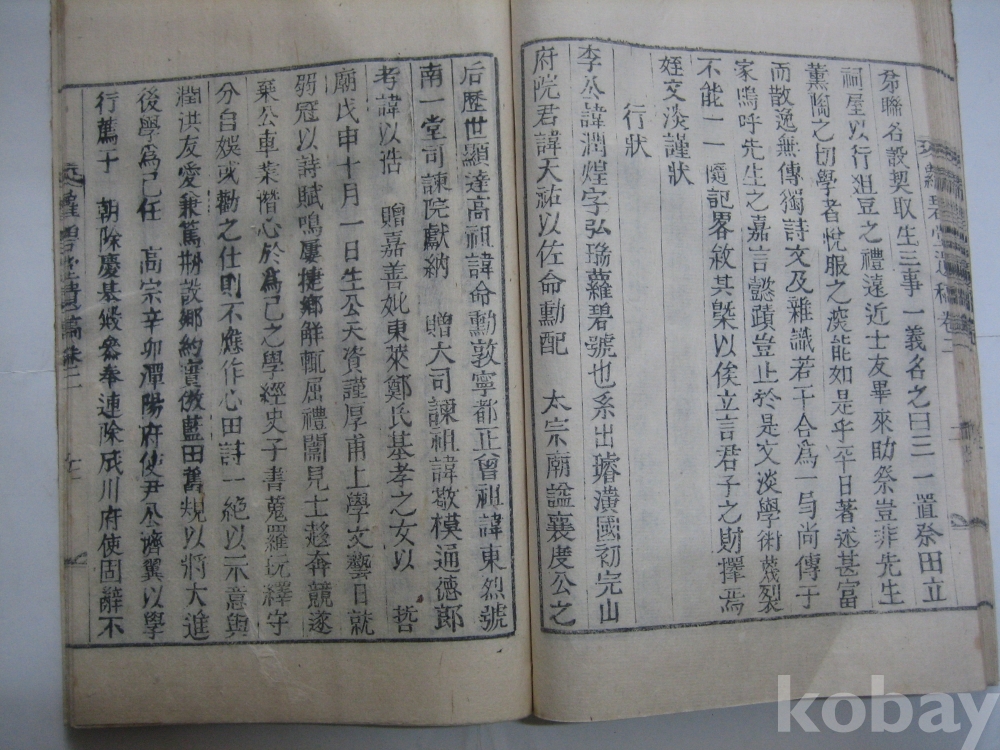 弟聯名設契取生三事一義名之曰三一置祭田立
祠屋以行俎豆之禮遠近士友畢來助祭豈非先生
薰陶之切學者悅服之深能如是乎平日著述甚富
而散逸無傳獨詩文及雜識若干合爲一局尙傳于
家嗚呼先生之嘉言懿蹟豈止於是文淡學術蔑裂
不能一一隨記畧敘其槩以俟立言君子之財擇焉
姪文淡謹狀
行狀
李公諱潤煌字弘瑞蘿碧號也系出璿潢國初完山
府院君諱天祐以佐命勳配 太宗廟謚襄度公之
后歷世顯達高祖諱命勳敦寧都正曾祖諱東烈號
南一堂司諫院獻納 贈大司諫祖諱敬模通德郎
考諱以浩 贈嘉善妣東萊鄭氏基孝之女以 哲
廟戊申十月一日生公天資謹厚甫上學文藝日就
弱冠以詩賦鳴屢捷鄕解輒屈禮闈見士趍奔競遂
棄公車業潛心於爲己之學經史子書蒐羅玩繹守
分自娛或勸之仕則不應作心田詩一絶以示意與
潤洪友愛兼篤刱設鄕約實倣藍田舊規以將大進
後學爲己任 高宗辛卯潭陽府使尹公濟翼以學
行薦于 朝除慶基殿叅奉連除成川府使固辭不
蘿碧堂遺稿卷二
kobay